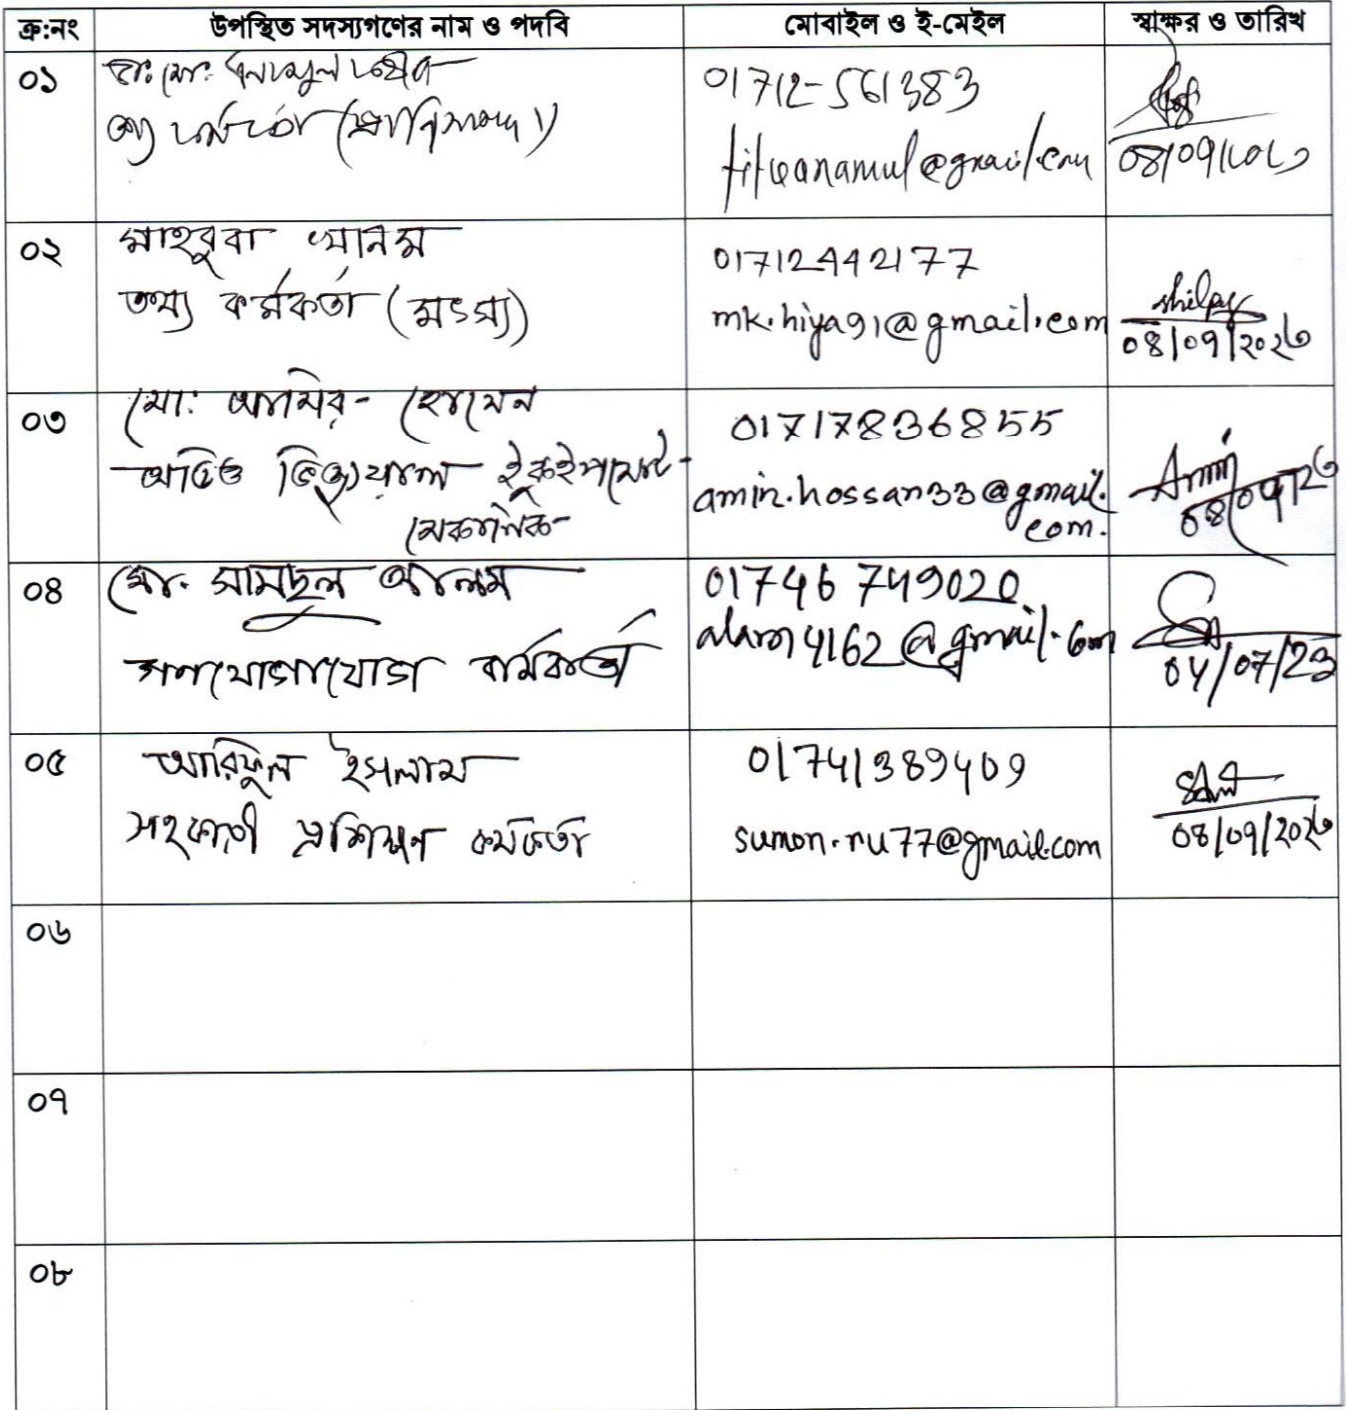 ক্র:নং উপস্থিত সদস্যগণের নাম ও পদবি মোবাইল ও ই-মেইল স্বাক্ষর ও তারিখ
০১ ডা: মো: এনামুল কবীর
তথ্য কর্মকর্তা (প্রাণিসম্পদ)
01712-561383
@gmail.com
০২ মাহবুবা খানম
তথ্য কর্মকর্তা (মৎস্য)
01712442177
mk.hiya91@gmail.com
shilpy
০৮/০৯/২০২৩
০৩ মো: আমির হোসেন
অডিও ভিজ্যুয়াল ইকুইপমেন্ট
মেকানিক
01717836855
amin.hossan33@gmail.
com.
০৪ মো. সামছুল আলম
গণযোগাযোগ কর্মকর্তা
01746 749020
alam4162@gmail.com
04/07/23
০৫ আরিফুল ইসলাম
সহকারী প্রশিক্ষণ কর্মকর্তা
01741389409
sumon.ru77@gmail.com
০৮/০৯/২০২৩
০৬
০৭
০৮